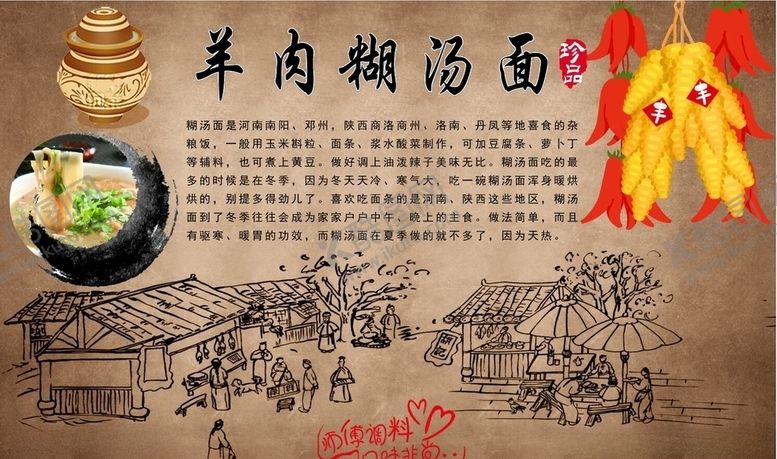 羊肉糊汤面
珍品
丰
丰
糊汤面是河南南阳、邓州，陕西商洛商州、洛南、丹凤等地喜食的杂
粮饭，一般用玉米斟粒、面条、浆水酸菜制作，可加豆腐条、萝卜丁
等辅料，也可煮上黄豆。做好调上油泼辣子美味无比。糊汤面吃的最
多的时候是在冬季，因为冬天天冷、寒气大，吃一碗糊汤面浑身暖烘
烘的，别提多得劲儿了。喜欢吃面条的是河南、陕西这些地区，糊汤
面到了冬季往往会成为家家户户中午、晚上的主食。做法简单，而且
有驱寒、暖胃的功效，而糊汤面在夏季做的就不多了，因为天热。
师傅调料
口味非尚..